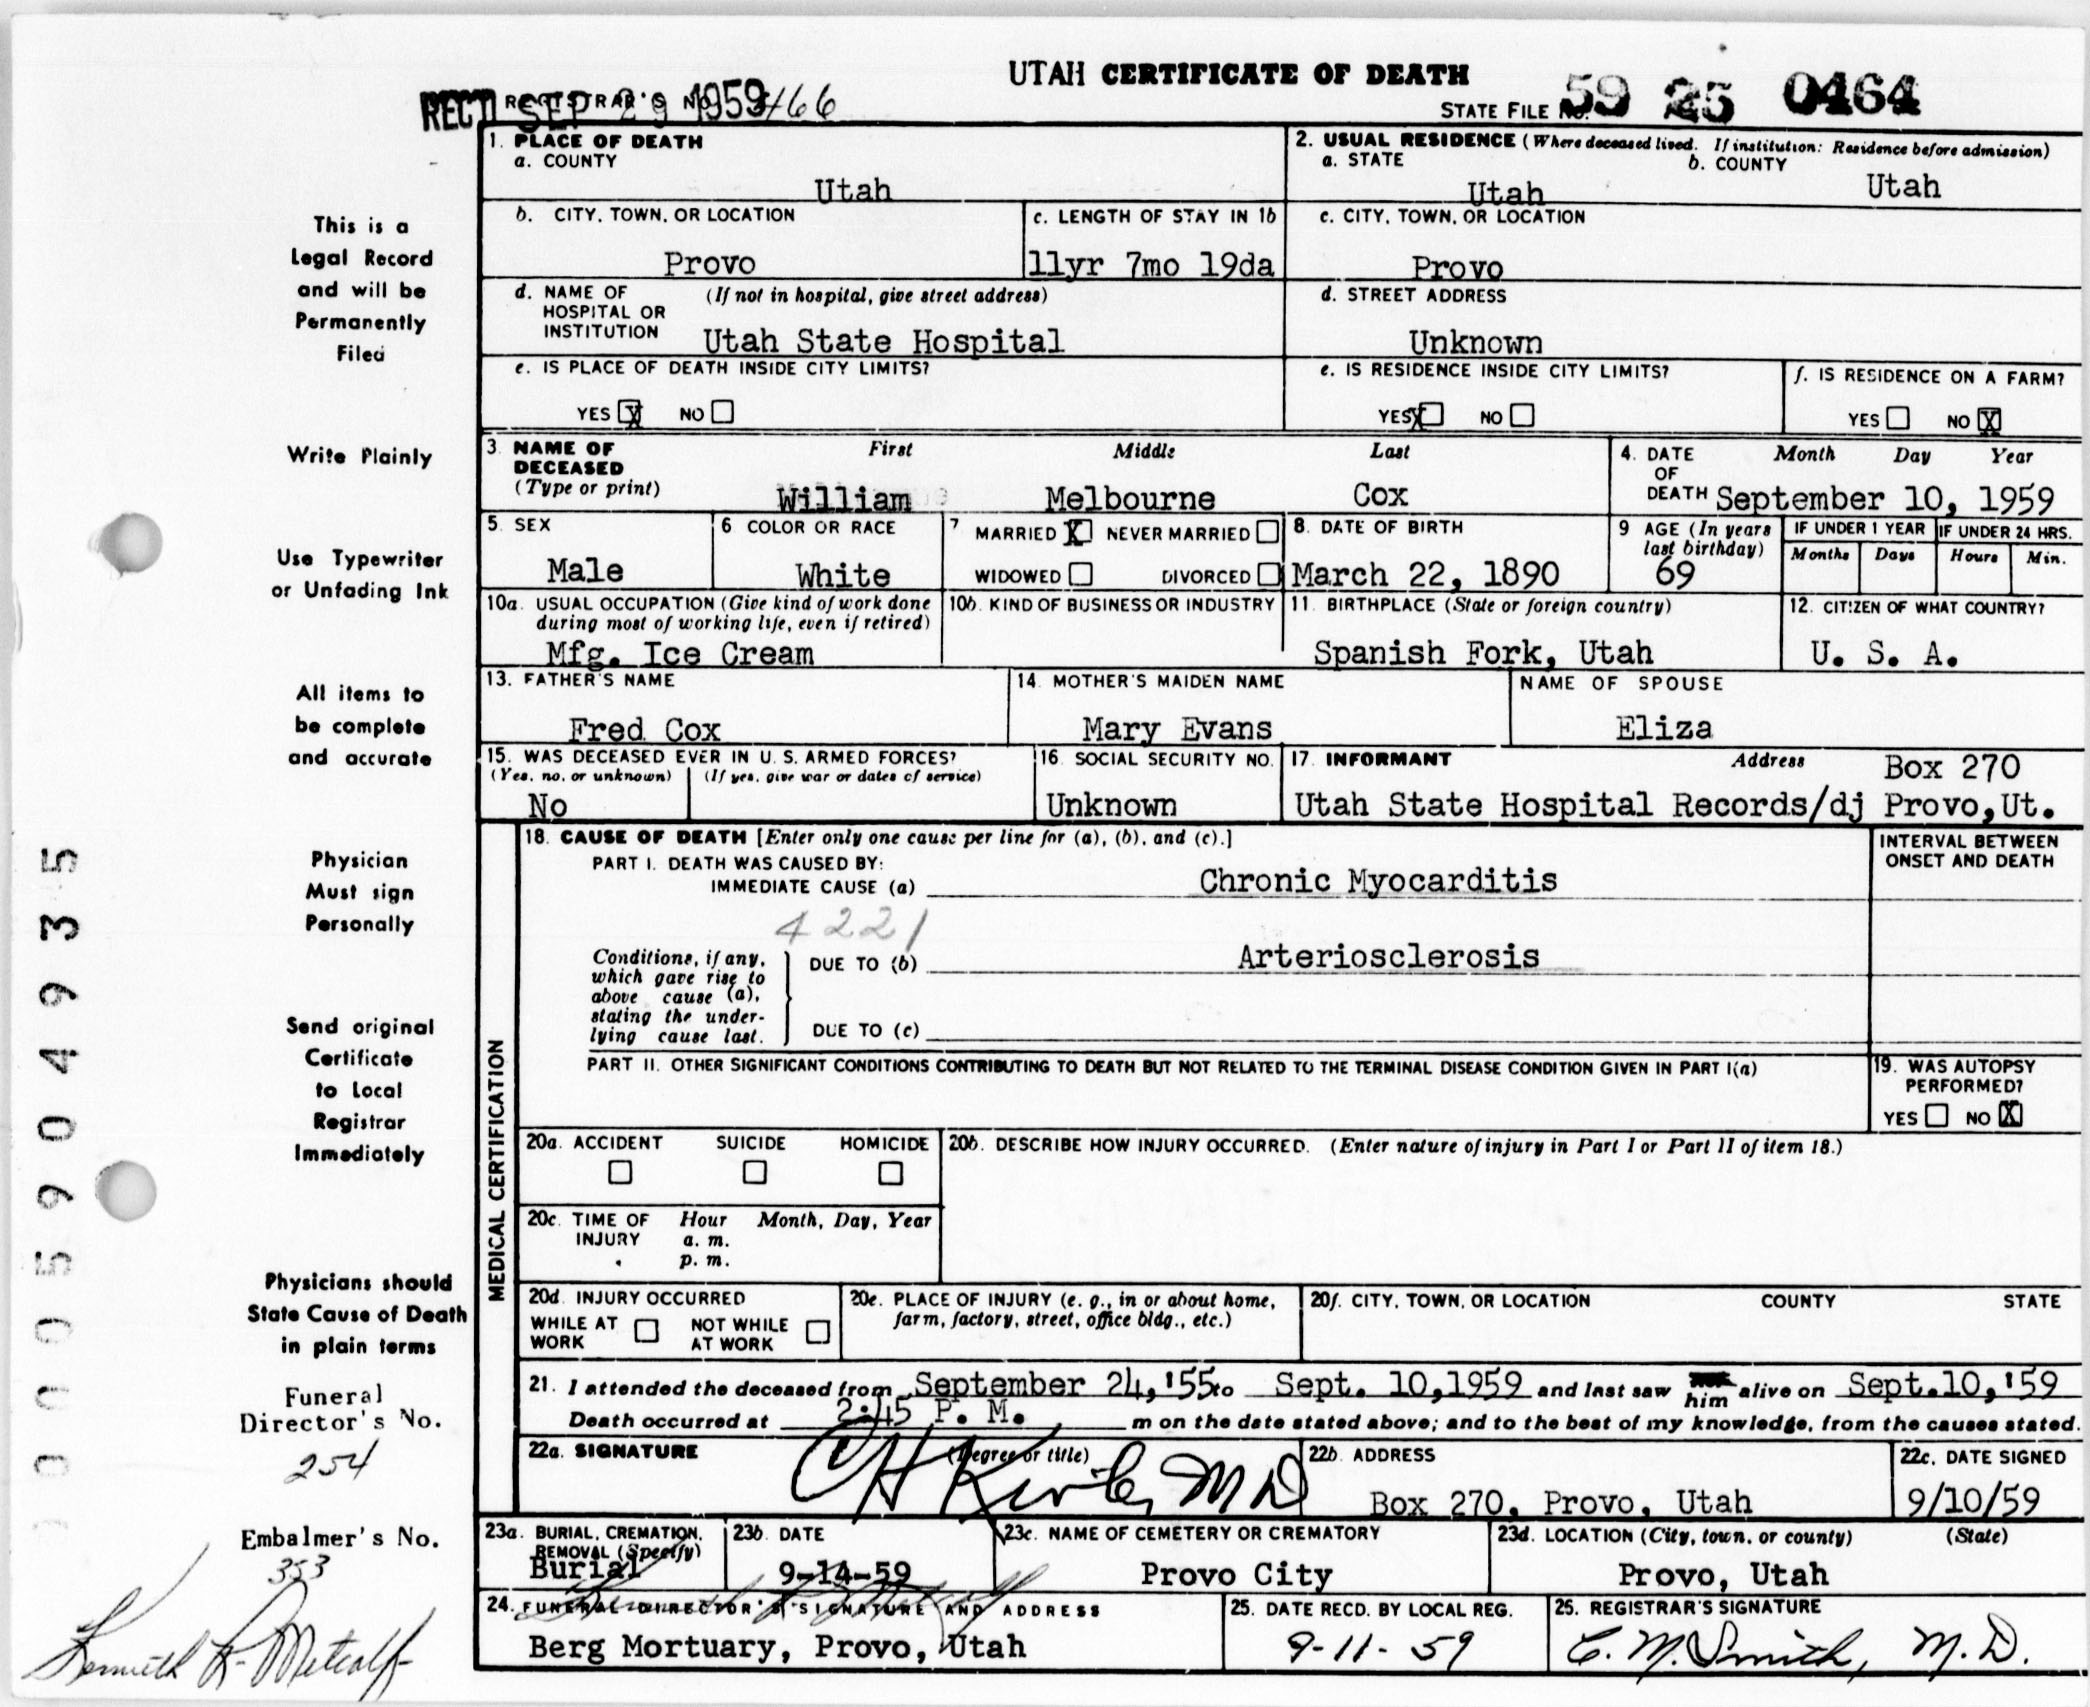 UTAH CERTIFICATE OF DEATH
REC'D SEP 29 1959
REGISTRAR'S NO. 466
STATE FILE NO. 59 25 0464
1. PLACE OF DEATH
a. COUNTY
Utah
2. USUAL RESIDENCE (Where deceased lived. If institution: Residence before admission)
a. STATE
Utah
b. COUNTY
Utah
b. CITY, TOWN, OR LOCATION
Provo
c. LENGTH OF STAY IN 1b
11yr 7mo 19da
c. CITY, TOWN, OR LOCATION
Provo
d. NAME OF HOSPITAL OR INSTITUTION
(If not in hospital, give street address)
Utah State Hospital
d. STREET ADDRESS
Unknown
e. IS PLACE OF DEATH INSIDE CITY LIMITS?
YES X NO
e. IS RESIDENCE INSIDE CITY LIMITS?
YES X NO
f. IS RESIDENCE ON A FARM?
YES NO X
3. NAME OF DECEASED
(Type or print)
First Middle Last
William Melbourne Cox
4. DATE OF DEATH
Month Day Year
September 10, 1959
5. SEX
Male
6 COLOR OR RACE
White
7 MARRIED X NEVER MARRIED
WIDOWED DIVORCED
8. DATE OF BIRTH
March 22, 1890
9 AGE (In years last birthday)
69
IF UNDER 1 YEAR
Months Days
IF UNDER 24 HRS.
Hours Min.
10a. USUAL OCCUPATION (Give kind of work done during most of working life, even if retired)
Mfg. Ice Cream
10b. KIND OF BUSINESS OR INDUSTRY
11. BIRTHPLACE (State or foreign country)
Spanish Fork, Utah
12. CITIZEN OF WHAT COUNTRY?
U. S. A.
13. FATHER'S NAME
Fred Cox
14. MOTHER'S MAIDEN NAME
Mary Evans
NAME OF SPOUSE
Eliza
15. WAS DECEASED EVER IN U. S. ARMED FORCES?
(Yes, no, or unknown) (If yes, give war or dates of service)
No
16. SOCIAL SECURITY NO.
Unknown
17. INFORMANT Address
Utah State Hospital Records/dj
Box 270
Provo,Ut.
MEDICAL CERTIFICATION
18. CAUSE OF DEATH [Enter only one cause per line for (a), (b), and (c).]
INTERVAL BETWEEN ONSET AND DEATH
PART I. DEATH WAS CAUSED BY:
IMMEDIATE CAUSE (a) Chronic Myocarditis
4221
Conditions, if any, which gave rise to above cause (a), stating the underlying cause last.
DUE TO (b) Arteriosclerosis
DUE TO (c)
PART II. OTHER SIGNIFICANT CONDITIONS CONTRIBUTING TO DEATH BUT NOT RELATED TO THE TERMINAL DISEASE CONDITION GIVEN IN PART I(a)
19. WAS AUTOPSY PERFORMED?
YES NO X
20a. ACCIDENT SUICIDE HOMICIDE
20b. DESCRIBE HOW INJURY OCCURRED. (Enter nature of injury in Part I or Part II of item 18.)
20c. TIME OF INJURY
Hour Month, Day, Year
a. m.
p. m.
20d. INJURY OCCURRED
WHILE AT WORK NOT WHILE AT WORK
20e. PLACE OF INJURY (e. g., in or about home, farm, factory, street, office bldg., etc.)
20f. CITY, TOWN, OR LOCATION COUNTY STATE
21. I attended the deceased from September 24,'55 to Sept. 10,1959 and last saw him alive on Sept.10,'59
Death occurred at 2:45 P. M. m on the date stated above; and to the best of my knowledge, from the causes stated.
22a. SIGNATURE (Degree or title)
M D
22b. ADDRESS
Box 270, Provo, Utah
22c. DATE SIGNED
9/10/59
23a. BURIAL, CREMATION, REMOVAL (Specify)
Burial
23b. DATE
9-14-59
23c. NAME OF CEMETERY OR CREMATORY
Provo City
23d. LOCATION (City, town, or county) (State)
Provo, Utah
24. FUNERAL DIRECTOR'S SIGNATURE AND ADDRESS
Berg Mortuary, Provo, Utah
25. DATE RECD. BY LOCAL REG.
9-11-59
25. REGISTRAR'S SIGNATURE
C. M. Smith, M.D.
This is a
Legal Record
and will be
Permanently
Filed
Write Plainly
Use Typewriter
or Unfading Ink
All items to
be complete
and accurate
Physician
Must sign
Personally
Send original
Certificate
to Local
Registrar
Immediately
Physicians should
State Cause of Death
in plain terms
Funeral
Director's No.
254
Embalmer's No.
353
Kenneth R. Metcalf
005904935